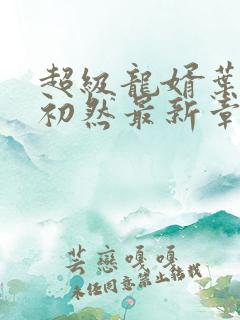 超級龍婿葉
初然最新章
芸戀嘎嘎
未经同意禁止转载